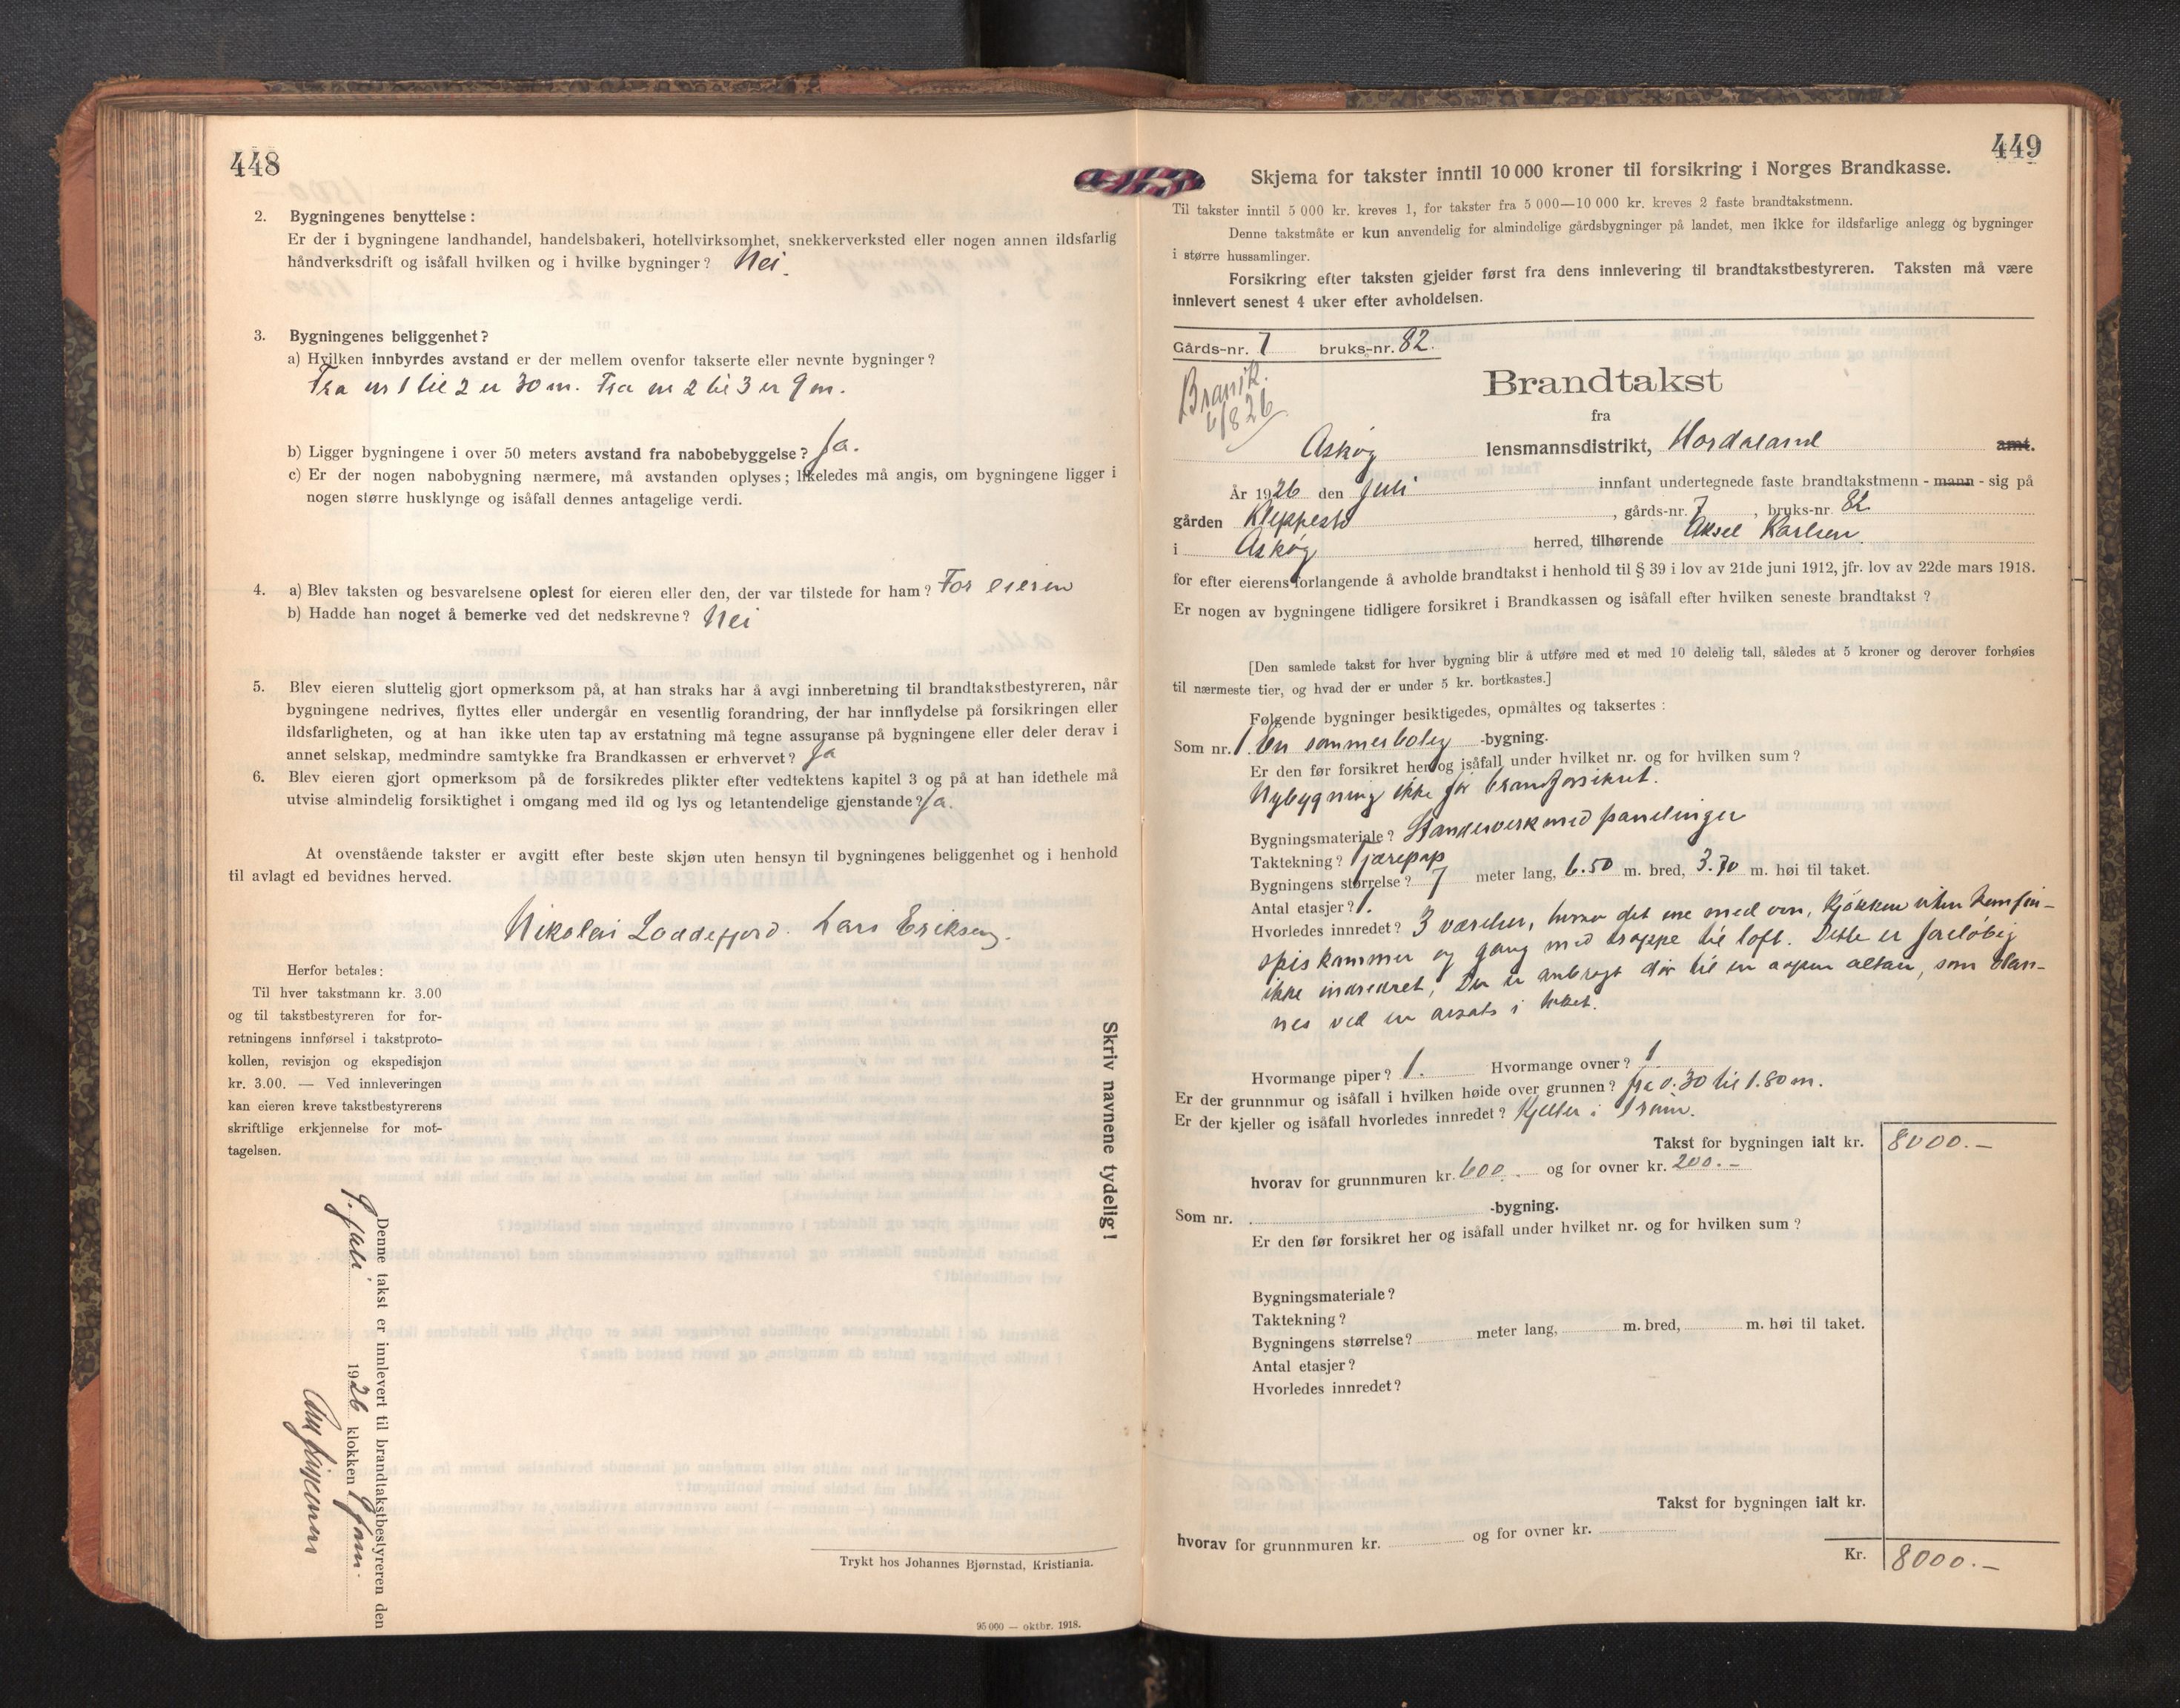 448
2. Bygningenes benyttelse:
Er der i bygningene landhandel, handelsbakeri, hotellvirksomhet, snekkerverksted eller nogen annen ildsfarlig
håndverksdrift og isåfall hvilken og i hvilke bygninger? Nei.
3. Bygningenes beliggenhet?
a) Hvilken innbyrdes avstand er der mellem ovenfor takserte eller nevnte bygninger?
Fra nr 1 til 2 er 30 m. Fra nr 2 til 3 er 9 m.
b) Ligger bygningene i over 50 meters avstand fra nabobebyggelse? Ja.
c) Er der nogen nabobygning nærmere, må avstanden oplyses; likeledes må angis, om bygningene ligger i
nogen større husklynge og isåfall dennes antagelige verdi.
4. a) Blev taksten og besvarelsene oplest for eieren eller den, der var tilstede for ham? For eieren
b) Hadde han noget å bemerke ved det nedskrevne? Nei
5. Blev eieren sluttelig gjort opmerksom på, at han straks har å avgi innberetning til brandtakstbestyreren, når
bygningene nedrives, flyttes eller undergår en vesentlig forandring, der har innflydelse på forsikringen eller
ildsfarligheten, og at han ikke uten tap av erstatning må tegne assuranse på bygningene eller deler derav i
annet selskap, medmindre samtykke fra Brandkassen er erhvervet? Ja
6. Blev eieren gjort opmerksom på de forsikredes plikter efter vedtektens kapitel 3 og på at han idethele må
utvise almindelig forsiktighet i omgang med ild og lys og letantendelige gjenstande? Ja.
At ovenstående takster er avgitt efter beste skjøn uten hensyn til bygningenes beliggenhet og i henhold
til avlagt ed bevidnes herved.
Nikolai Loddefjord. Lars Eriksen.
Herfor betales:
Til hver takstmann kr. 3.00
og til takstbestyreren for for-
retningens innførsel i takstproto-
kollen, revisjon og ekspedisjon
kr. 3.00. — Ved innleveringen
kan eieren kreve takstbestyrerens
skriftlige erkjennelse for mot-
tagelsen.
Skriv navnene tydelig!
Denne takst er innlevert til brandtakstbestyreren den
9. juli 1926 klokken 9 form.
Trykt hos Johannes Bjørnstad, Kristiania.
95 000 — oktbr. 1918.
449
Skjema for takster inntil 10 000 kroner til forsikring i Norges Brandkasse.
Til takster inntil 5 000 kr. kreves 1, for takster fra 5 000—10 000 kr. kreves 2 faste brandtakstmenn.
Denne takstmåte er kun anvendelig for almindelige gårdsbygninger på landet, men ikke for ildsfarlige anlegg og bygninger
i større hussamlinger.
Forsikring efter taksten gjelder først fra dens innlevering til brandtakstbestyreren. Taksten må være
innlevert senest 4 uker efter avholdelsen.
Gårds-nr. 7 bruks-nr. 82.
6/8 26
Brandtakst
fra
Askøy lensmannsdistrikt, Hordaland amt.
År 1926 den Juli innfant undertegnede faste brandtakstmenn - mann - sig på
gården Kleppestø, gårds-nr. 7, bruks-nr. 82
i Askøy herred, tilhørende Aksel Karlsen.
for efter eierens forlangende å avholde brandtakst i henhold til § 39 i lov av 21de juni 1912, jfr. lov av 22de mars 1918.
Er nogen av bygningene tidligere forsikret i Brandkassen og isåfall efter hvilken seneste brandtakst?
[Den samlede takst for hver bygning blir å utføre med et med 10 delelig tall, således at 5 kroner og derover forhøies
til nærmeste tier, og hvad der er under 5 kr. bortkastes.]
Følgende bygninger besiktigedes, opmåltes og taksertes:
Som nr. 1. En sommerbolig -bygning.
Er den før forsikret her og isåfall under hvilket nr. og for hvilken sum?
Nybygning ikke før brandforsikret.
Bygningsmateriale? Standerverk med panelinger
Taktekning? Tjærepap
Bygningens størrelse? 7 meter lang, 6.50 m. bred, 3.70 m. høi til taket.
Antal etasjer? 1.
Hvorledes innredet? 3 værelser, hvorav det ene med ovn, kjøkken uten komfur
spiskammer og gang med trappe til loft. Dette er foreløbig
ikke innredret, Der er anbragt dør til en aapen altan, som dan-
nes ved en avsats i taket.
Hvormange piper? 1. Hvormange ovner? 1
Er der grunnmur og isåfall i hvilken høide over grunnen? fra 0.30 til 1.80 m.
Er der kjeller og isåfall hvorledes innredet? Kjeller i 1 rum.
Takst for bygningen ialt kr. 8000.—
hvorav for grunnmuren kr. 600. og for ovner kr. 200.—
Som nr. -bygning.
Er den før forsikret her og isåfall under hvilket nr. og for hvilken sum?
Bygningsmateriale?
Taktekning?
Bygningens størrelse? meter lang, m. bred, m. høi til taket.
Antal etasjer?
Hvorledes innredet?
Takst for bygningen ialt kr.
hvorav for grunnmuren kr. og for ovner kr.
Kr. 8000.—